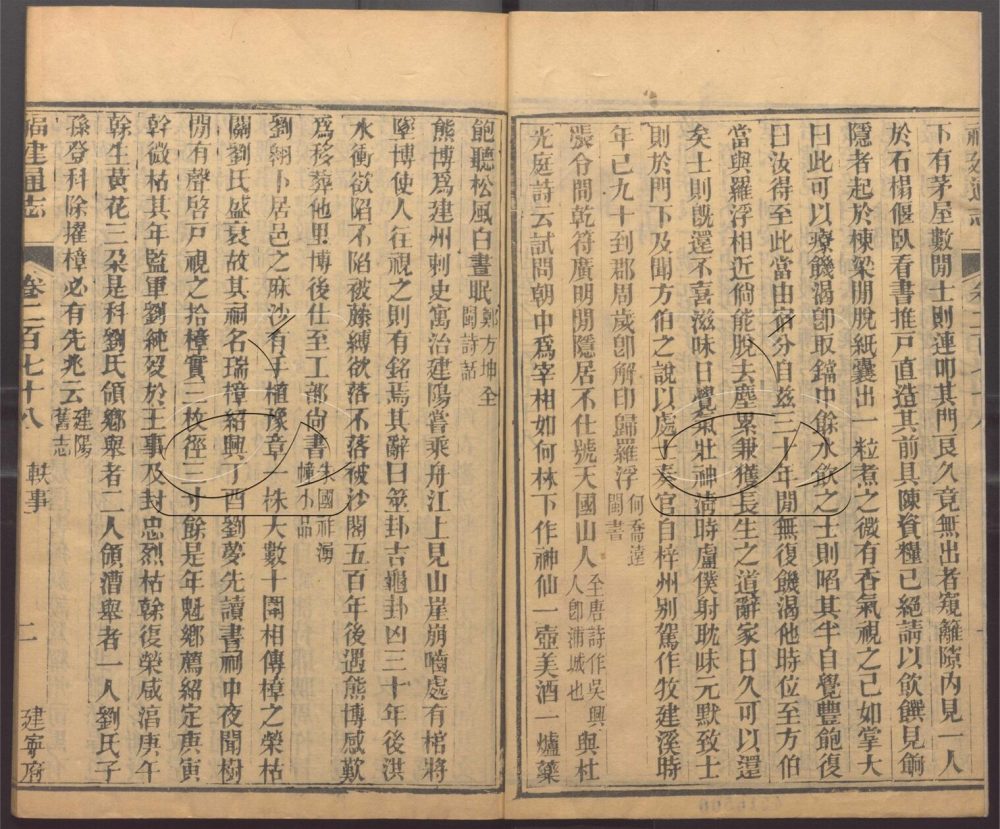 下有茅屋數間士則連叩其門良久竟無出者窺籬隙內見一人
於石榻偃臥看書推戶直造其前具陳資糧已絕請以飲饌見餉
隱者起於棟梁間脫紙囊出一粒煮之微有香氣視之已如掌大
曰此可以療饑渴卽取鐺中餘水飲之士則啗其半自覺豐飽復
曰汝得至此當由宿分自茲三十年間無復饑渴他時位至方伯
當與羅浮相近倘能脫去塵累兼獲長生之道辭家日久可以還
矣士則旣還不喜滋味日覺氣壯神淸時盧僕射耽味元默致士
則於門下及聞方伯之說以處士奏官自梓州別駕作牧建溪時
年已九十到郡周歲卽解印歸羅浮何喬遠閩書
張令問乾符廣明間隱居不仕號天國山人全唐詩作吳興人卽浦城也與杜
光庭詩云試問朝中爲宰相如何林下作神仙一壺美酒一爐藥
飽聽松風白晝眠鄭方坤全閩詩話
熊博爲建州刺史寓治建陽嘗乘舟江上見山崖崩嚙處有棺將
墜博使人往視之則有銘焉其辭曰筮卦吉龜卦凶三十年後洪
水衝欲陷不陷被藤縛欲落不落被沙閣五百年後遇熊博感歎
爲移葬他里博後仕至工部尙書朱國禎湧幢小品
劉翱卜居邑之麻沙有手植豫章一株大數十圍相傳樟之榮枯
關劉氏盛衰故其祠名瑞樟紹興丁酉劉夢先讀書祠中夜聞樹
間有聲啓戶視之拾樟實三枚徑三寸餘是年魁鄉薦紹定庚寅
幹微枯其年監軍劉純歿於王事及封忠烈枯榦復榮咸淳庚午
榦生黃花三朶是科劉氏領鄉舉者二人領漕舉者一人劉氏子
孫登科除擢樟必有先兆云建陽舊志
福建通志 卷二百七十八 軼事 二 建寧府